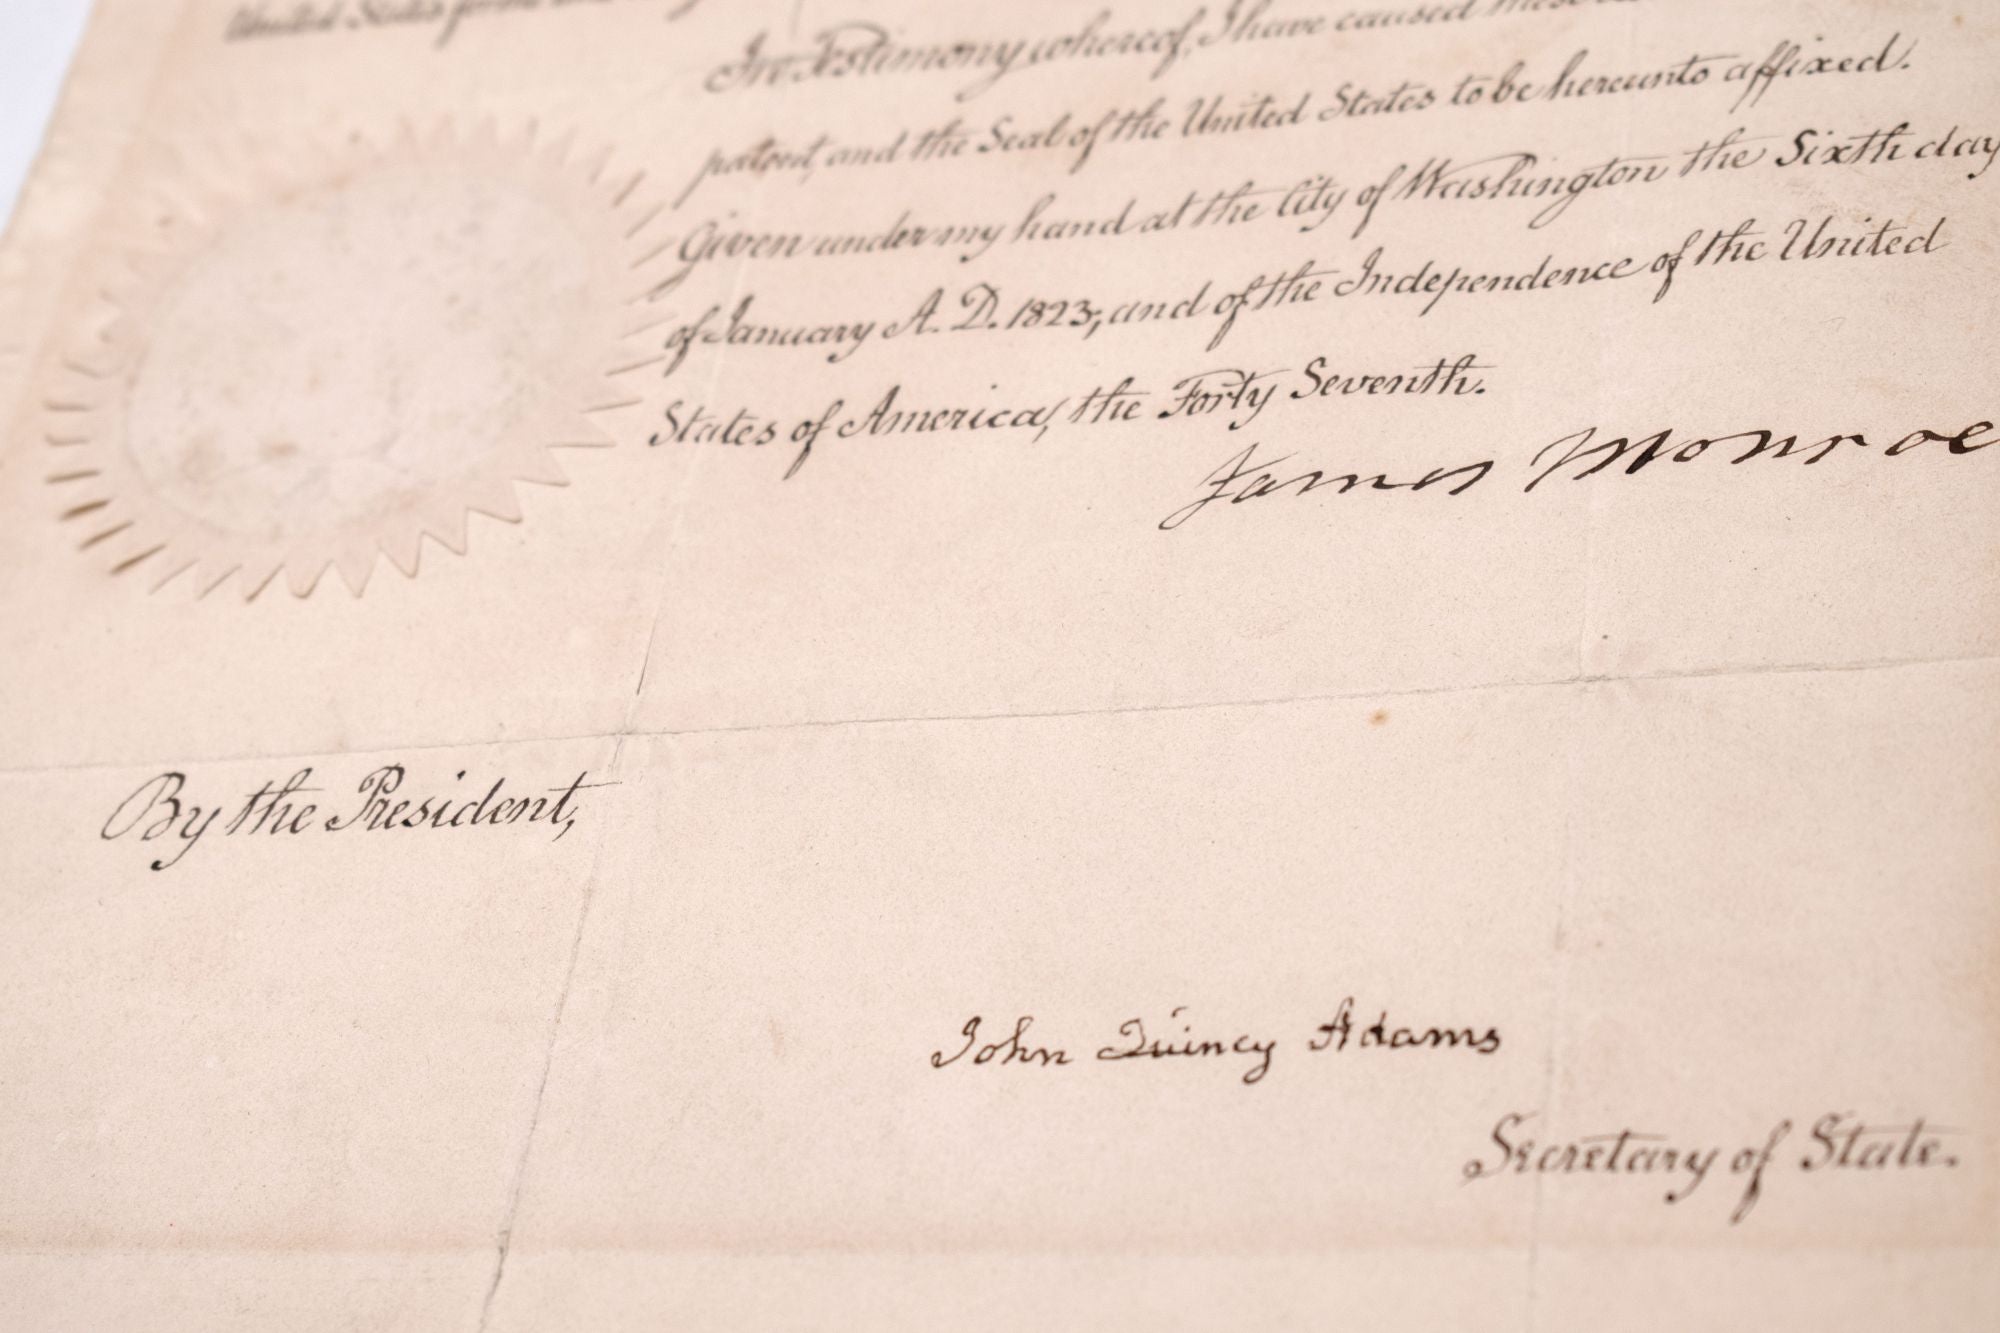 United States
In Testimony whereof, I have caused these
patent, and the Seal of the United States to be hereunto affixed.
Given under my hand at the City of Washington the Sixth day
of January A. D. 1823, and of the Independence of the United
States of America, the Forty Seventh.
James Monroe
By the President,
John Quincy Adams
Secretary of State.